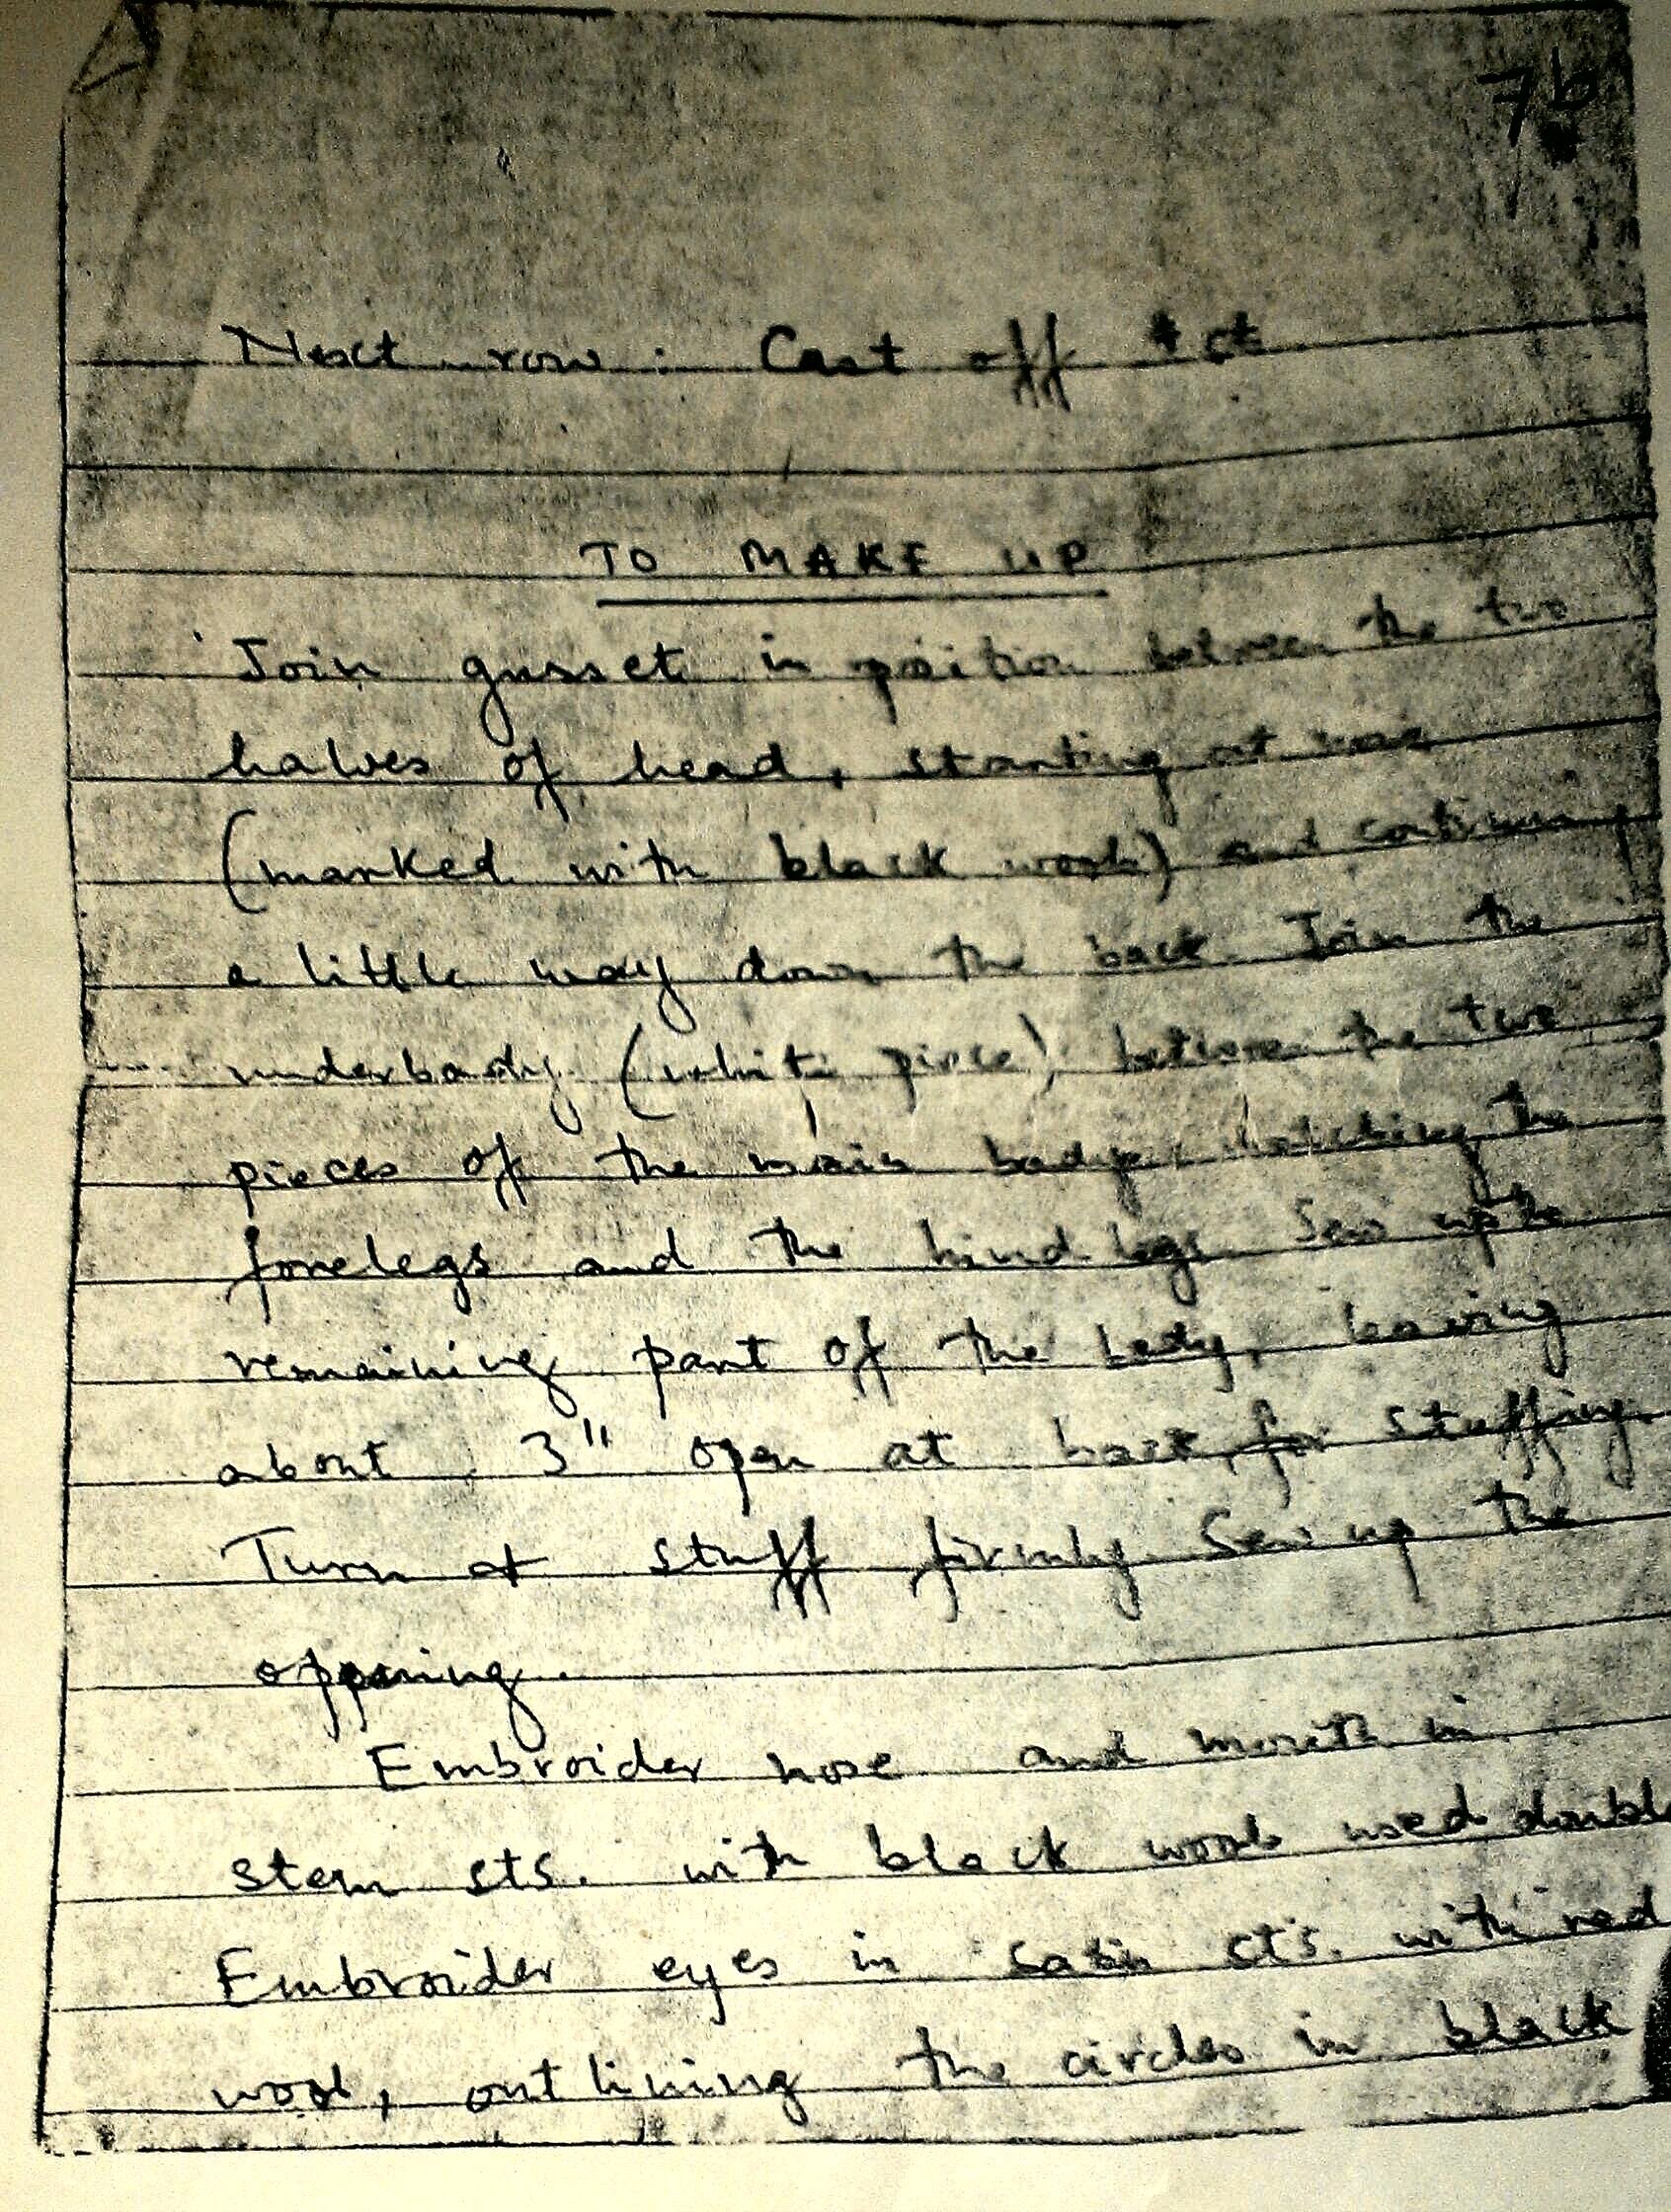 7b
Next row : Cast off
TO MAKE UP
Join gusset in position between the two
halves of head, starting at
(marked with black wool) and continuing
a little way down the back. Join the
underbody (white piece) between the two
pieces of the main body, matching the
forelegs and the hind legs. Sew up the
remaining part of the body, leaving
about 3" open at back for stuffing.
Turn & stuff firmly. Sew up the
opening.
Embroider nose and mouth in
stem sts. with black wool used doubl
Embroider eyes in satin sts. with red
wool, outlining the circles in black